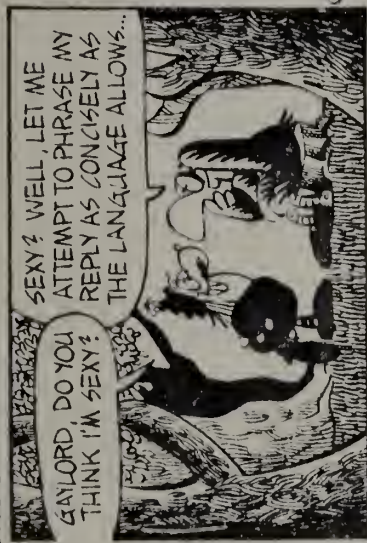 GAYLORD, DO YOU
THINK I'M SEXY?
SEXY? WELL, LET ME
ATTEMPT TO PHRASE MY
REPLY AS CONCISELY AS
THE LANGUAGE ALLOWS...